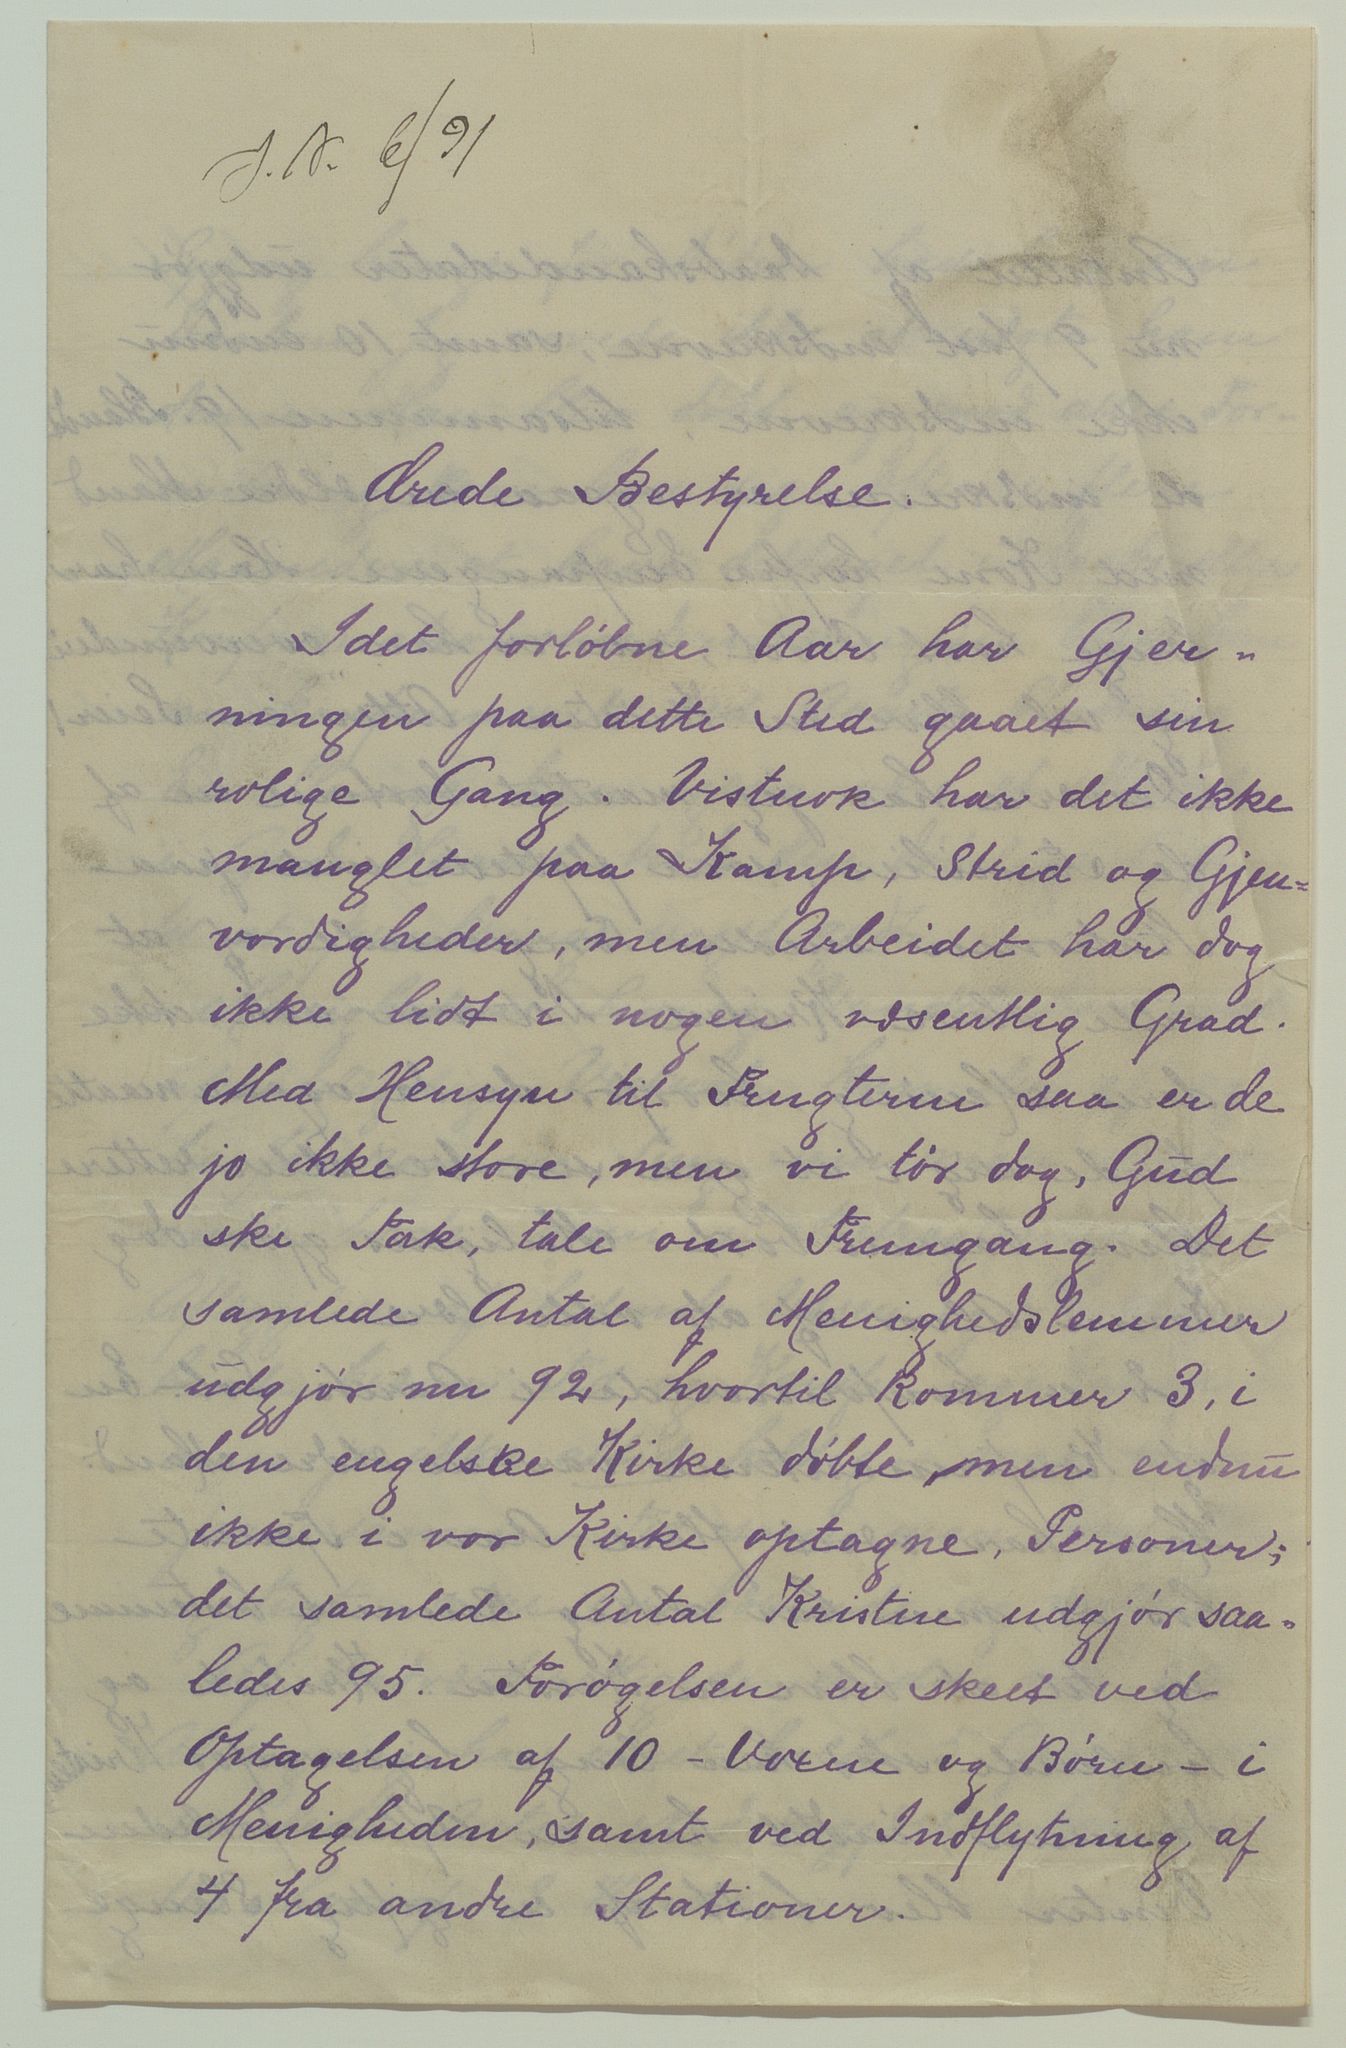 J. N. 6/91
Ærede Bestyrelse.
I det forløbne Aar har Gjer-
ningen paa dette Sted gaaet sin
rolige Gang. Vistnok har det ikke
manglet paa Kamp, Strid og Gjen-
vordigheder, men Arbeidet har dog
ikke lidt i nogen væsentlig Grad.
Med Hensyn til Frugterne saa er de
jo ikke store, men vi tør dog, Gud
ske Tak, tale om Fremgang. Det
samlede Antal af Menighedslemmer
udgjør nu 92, hvortil kommer 3, i
den engelske Kirke døbte, men endnu
ikke i vor Kirke optagne, Personer;
det samlede Antal Kristne udgjør saa-
ledes 95. Forøgelsen er skeet ved
Optagelsen af 10 - Voxne og Børn - i
Menigheden, samt ved Indflytning af
4 fra andre Stationer.